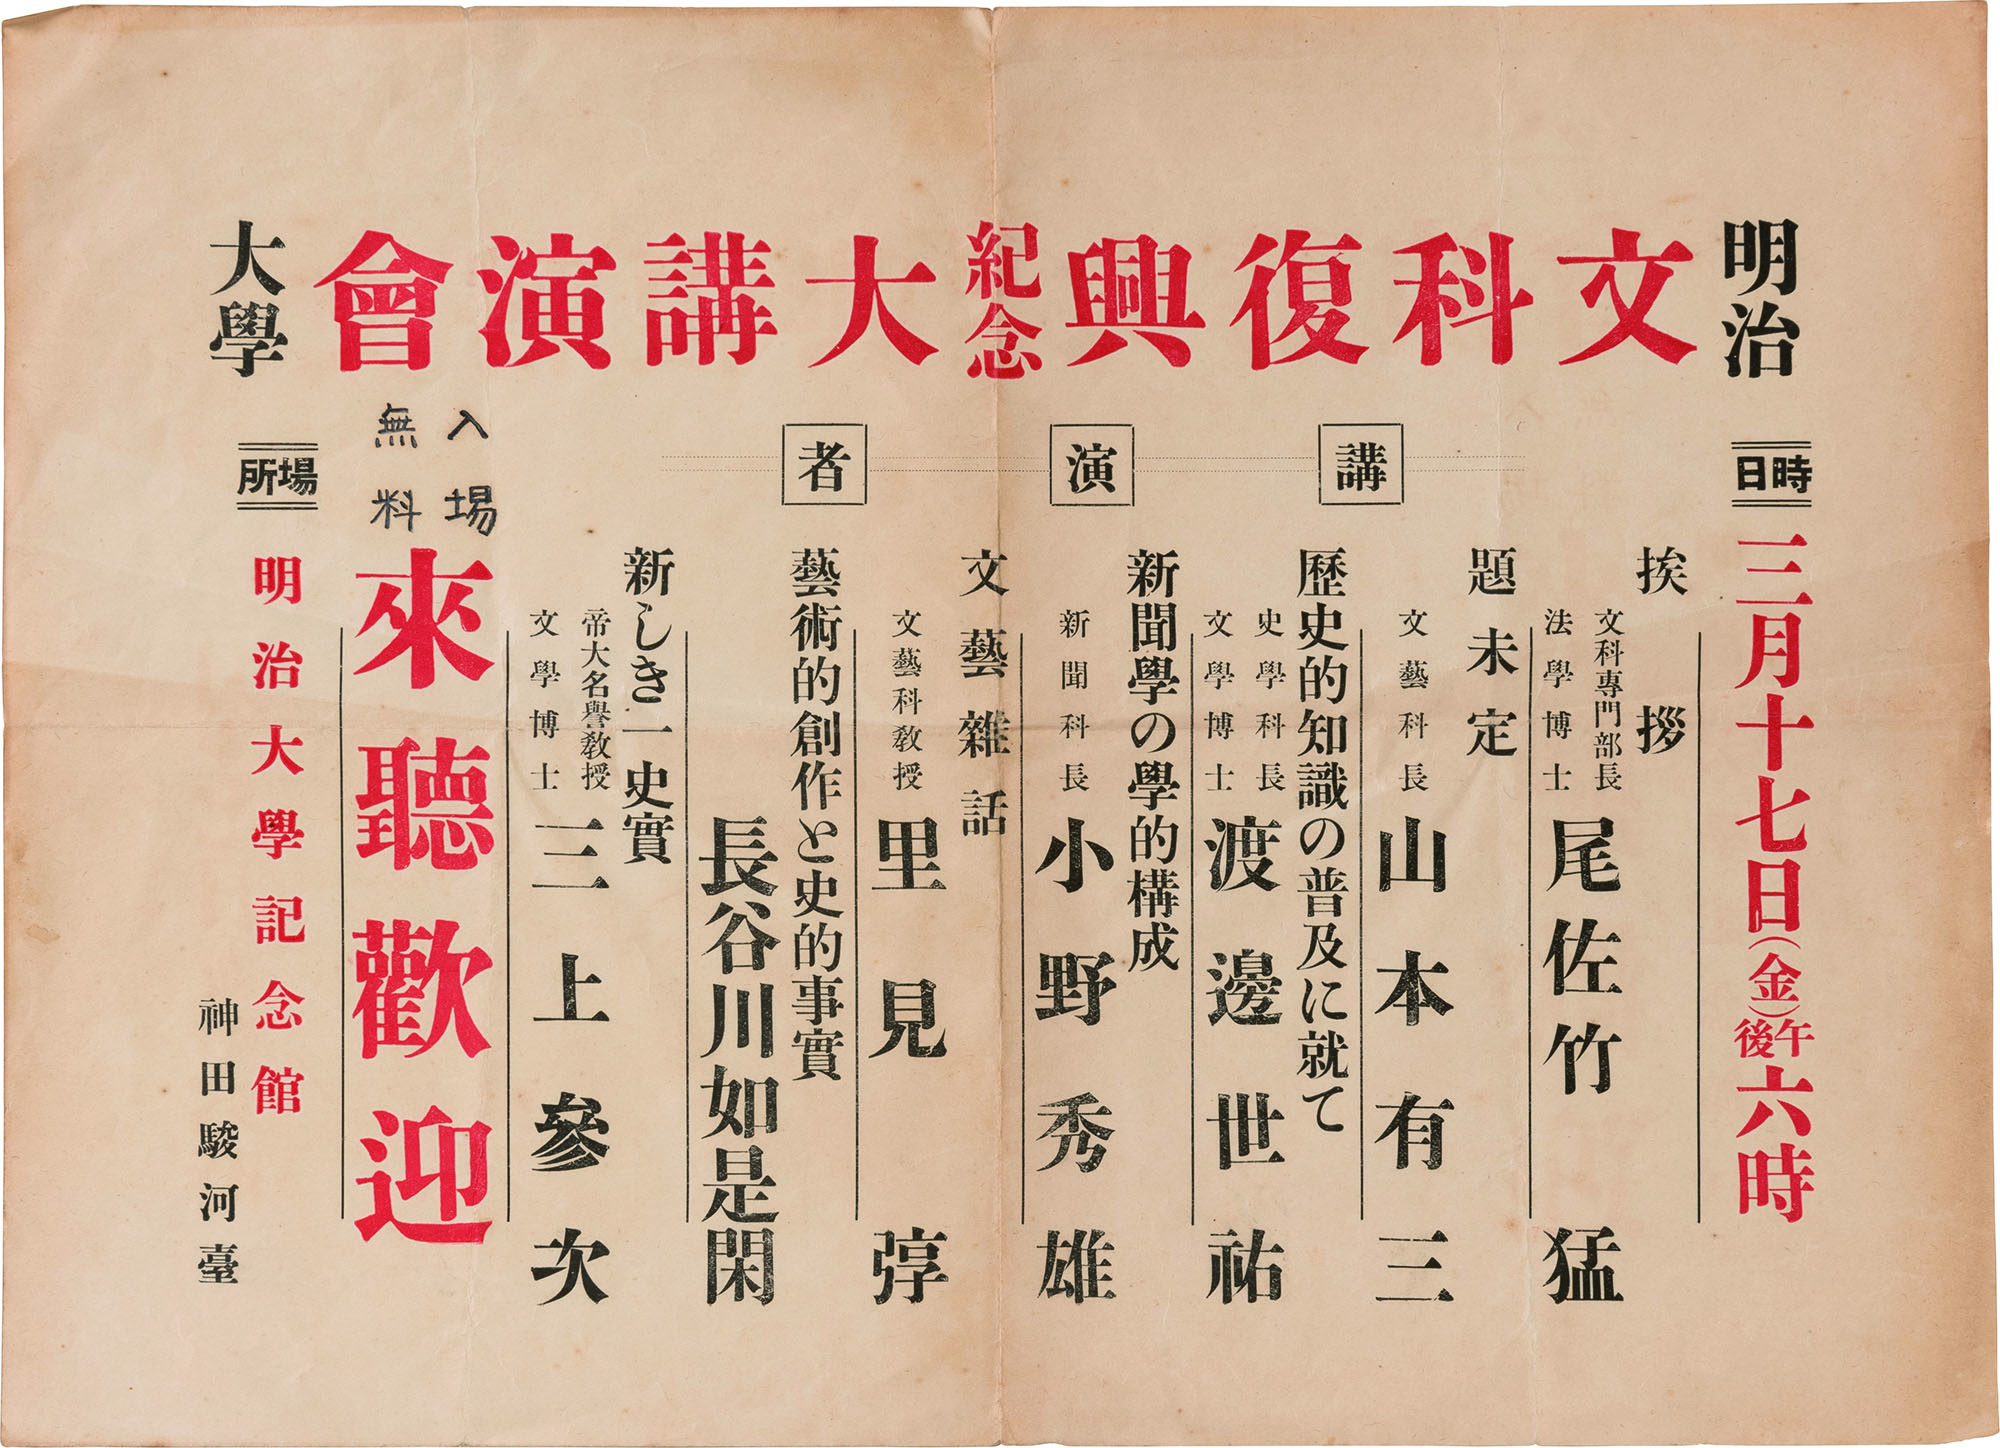 明治
文科復興紀念大講演會
大學
日時
三月十七日(金)午後六時
講演者
挨拶
文科專門部長
法學博士
尾佐竹猛
題未定
文藝科長
山本有三
歷史的知識の普及に就て
史學科長
文學博士
渡邊世祐
新聞學の學的構成
新聞科長
小野秀雄
文藝雜話
文藝科敎授
里見弴
藝術的創作と史的事實
長谷川如是閑
新しき一史實
帝大名譽敎授
文學博士
三上參次
入場
無料
來聽歡迎
場所
明治大學記念館
神田駿河臺